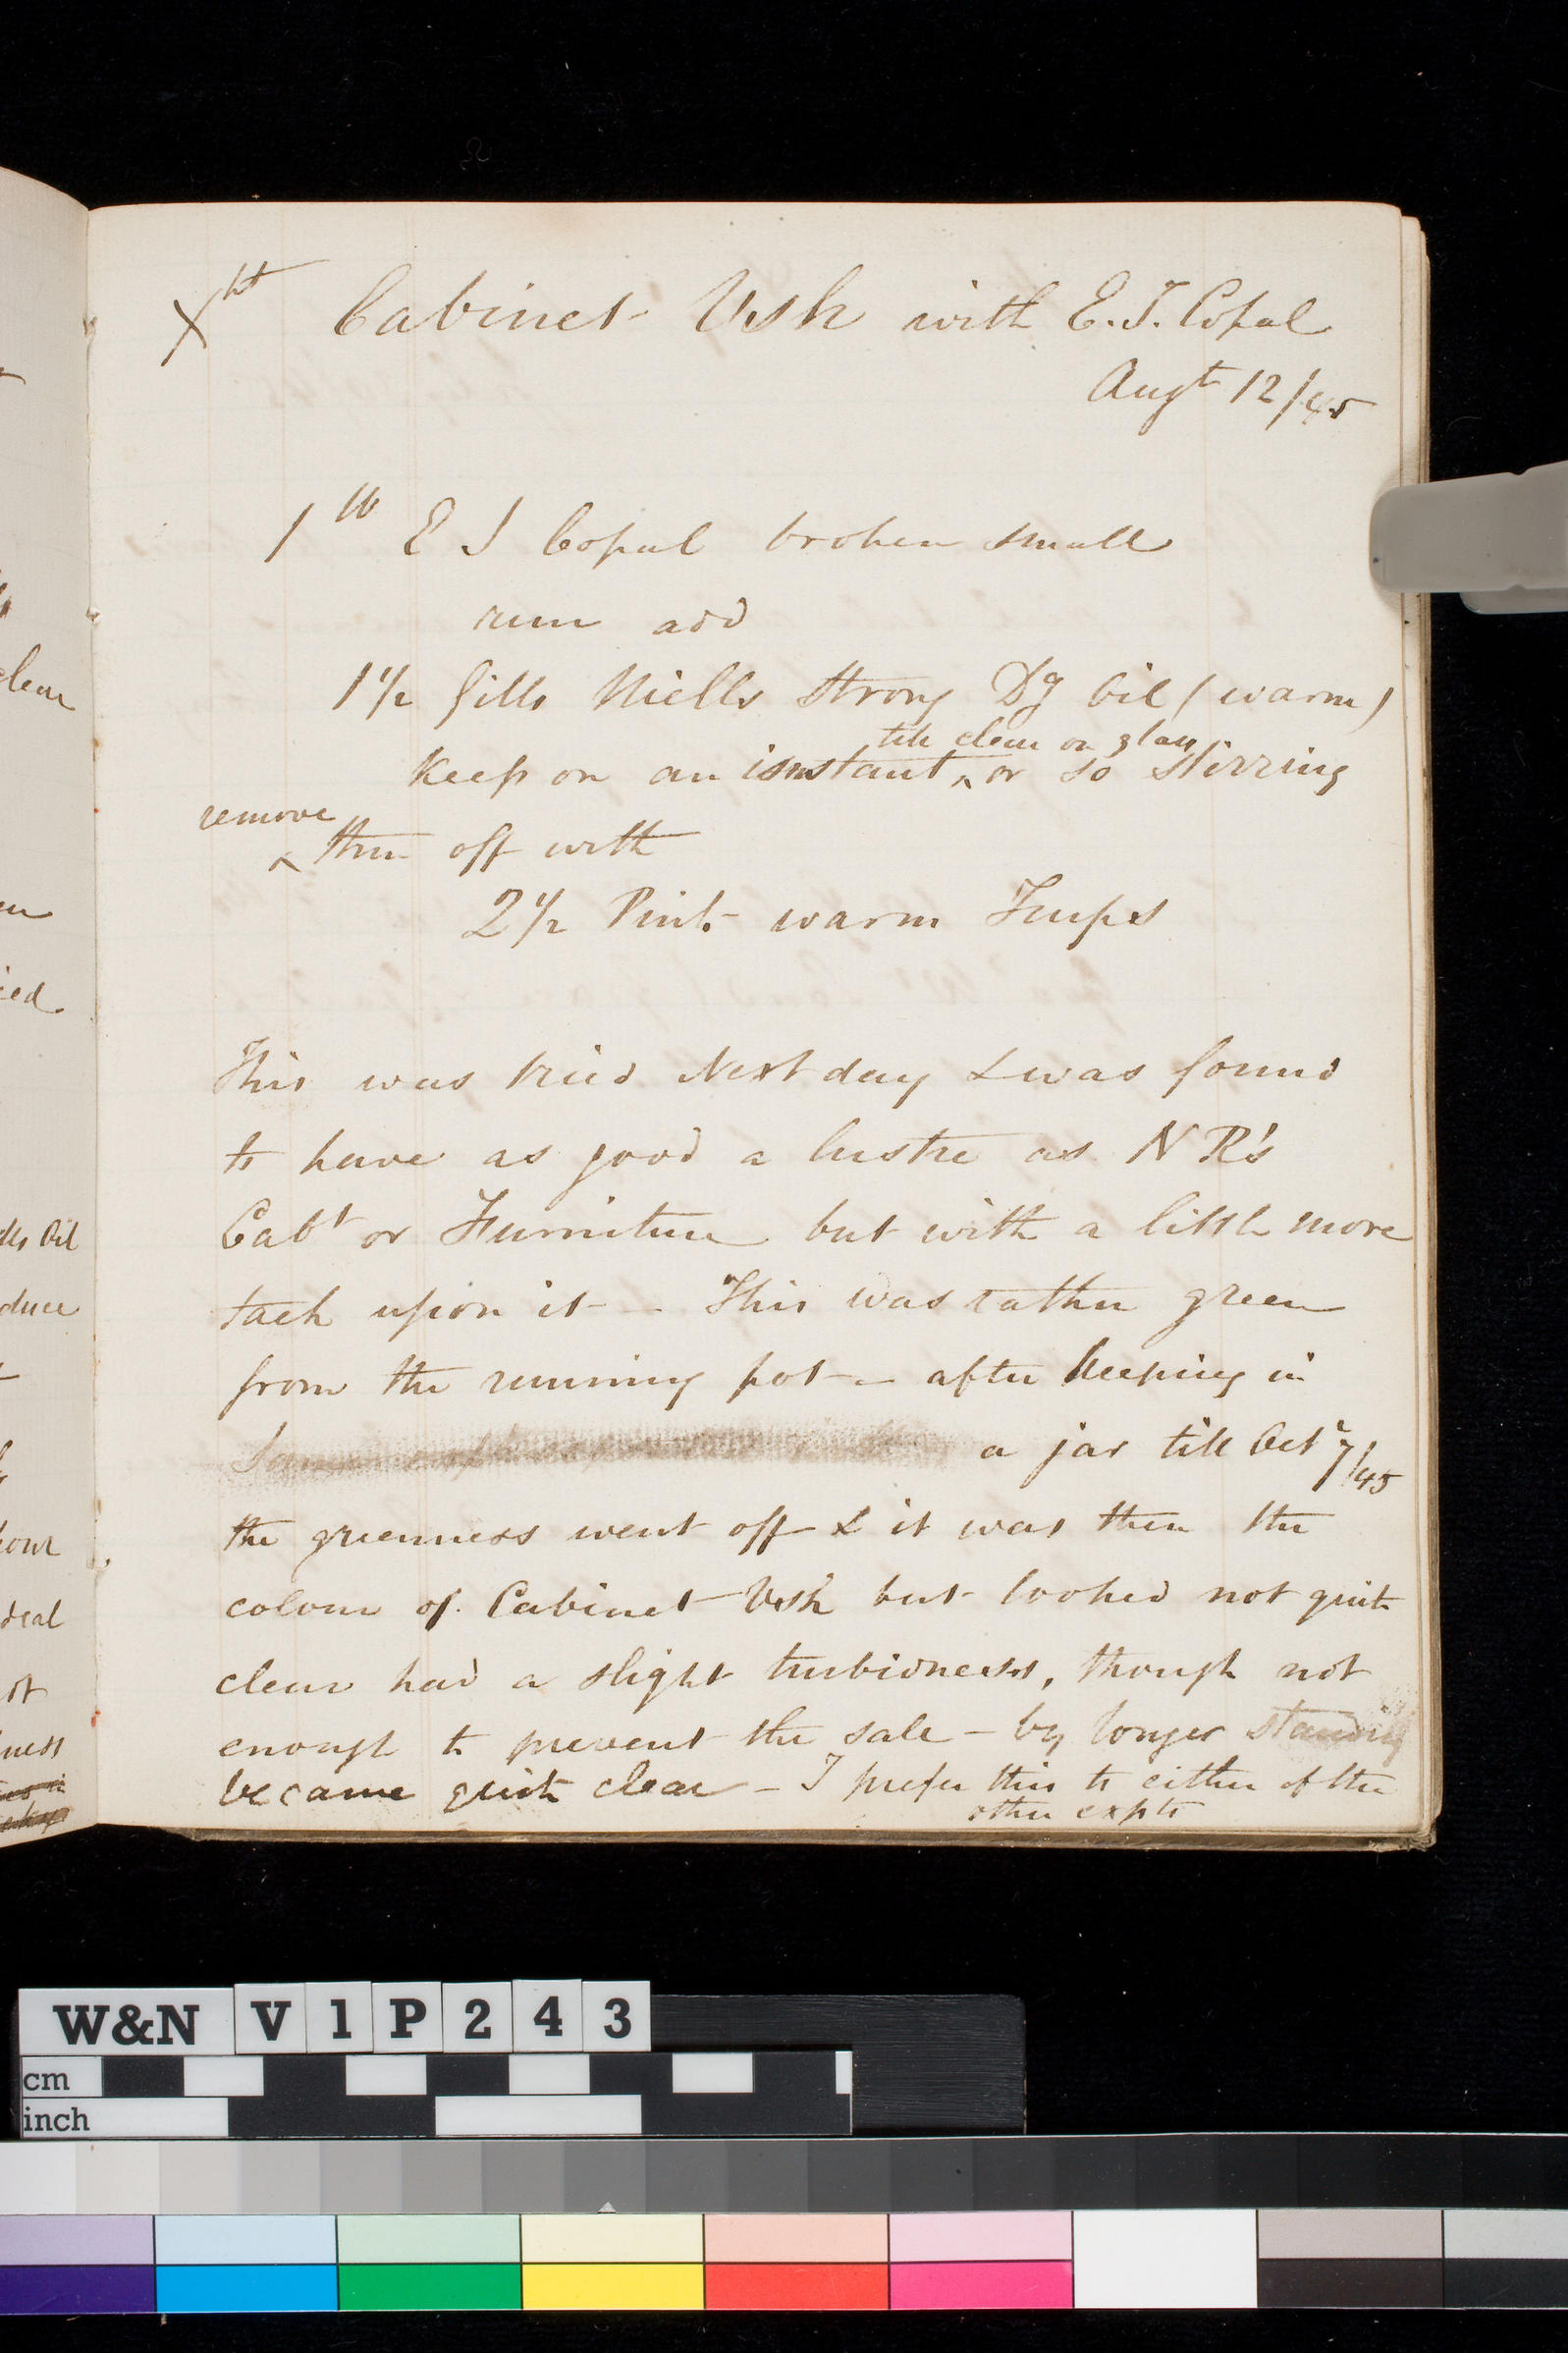 Xpt Cabinet Vsh with E.I. Copal
Augt 12/45
1 lb E I Copal broken small
run add
1 1/2 Gills Niells Strong Dg Oil (warm)
till clear on glass
Keep on an instant ^ or so stirring
remove
^ thin off with
2 1/2 Pints warm Turps
This was tried Next day & was found
to have as good a lustre as N R's
Cabt or Furniture but with a little more
tack upon it — This was rather green
from the running pot — after keeping in
a jar till Octr 7/45
the greenness went off & it was then the
colour of Cabinet Vsh but looked not quite
clear had a slight turbidness, though not
enough to prevent the sale — by longer standing
became quite clear — I prefer this to either of the
other expts
clear
ied
duce
our
deal
ot
ness
W&N V 1 P 2 4 3
cm
inch